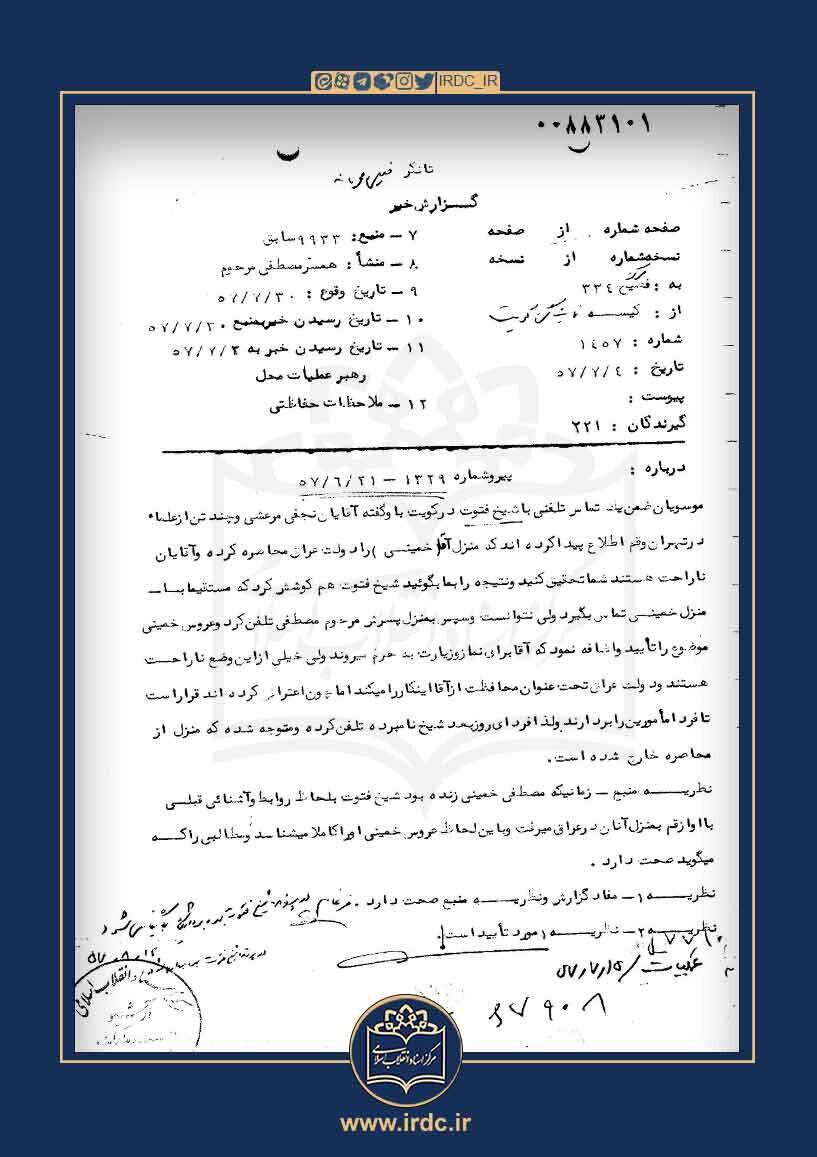 IRDC_IR
۰۰۸۸۳۱۰۱
گزارش خبر
صفحه شماره از صفحه
نسخه شماره از نسخه
به : ۳۳۴
از :
شماره : ۱۴۵۷
تاریخ : ۵۷/۷/۴
پیوست :
گیرندگان : ۲۲۱
۷ - منبع : ۹۹۳۳ سابق
۸ - منشأ : همسر مصطفی مرحوم
۹ - تاریخ وقوع : ۵۷/۷/۳۰
۱۰ - تاریخ رسیدن خبر بمنبع ۵۷/۷/۳۰
۱۱ - تاریخ رسیدن خبر به ۵۷/۷/۲
رهبر عملیات محل
۱۲ - ملاحظات حفاظتی
درباره : پیرو شماره ۱۳۲۹ - ۵۷/۶/۳۱
موسویان ضمن یک تماس تلفنی با شیخ فتوت در کویت با و گفته آقایان نجفی مرعشی و چند تن از علماء
در تهران و قم اطلاع پیدا کرده اند که منزل آقا (خمینی) را دولت عراق محاصره کرده و آقایان
ناراحت هستند شما تحقیق کنید و نتیجه را بما بگوئید شیخ فتوت هم کوشش کرد که مستقیما بـا
منزل خمینی تماس بگیرد ولی نتوانست و سپس بمنزل پسرش مرحوم مصطفی تلفن کرد و عروس خمینی
موضوع را تأیید و اضافه نمود که آقا برای نماز و زیارت به حرم میروند ولی خیلی از این وضع ناراحت
هستند و دولت عراق تحت عنوان محافظت از آقا اینکار را میکند اما چون اعتراض کرده اند قرار است
تا فردا مأمورین را بردارند ولذا فردای روز بعد شیخ نامبرده تلفن کرده و متوجه شده که منزل از
محاصره خارج شده است .
نظریـــه منبع - زمانیکه مصطفی خمینی زنده بود شیخ فتوت بلحاظ روابط و آشنائی قبلـی
با او از قم بمنزل آنان در عراق میرفت و باین لحاظ عروس خمینی او را کاملا میشناسد و مطالبی را کـه
میگوید صحت دارد .
نظریـــه ۱ - مفاد گزارش و نظریـــه منبع صحت دارد .
نظریـــه ۲ - نظریـــه ۱ مورد تأیید است .
مرکز اسناد انقلاب اسلامی
www.irdc.ir